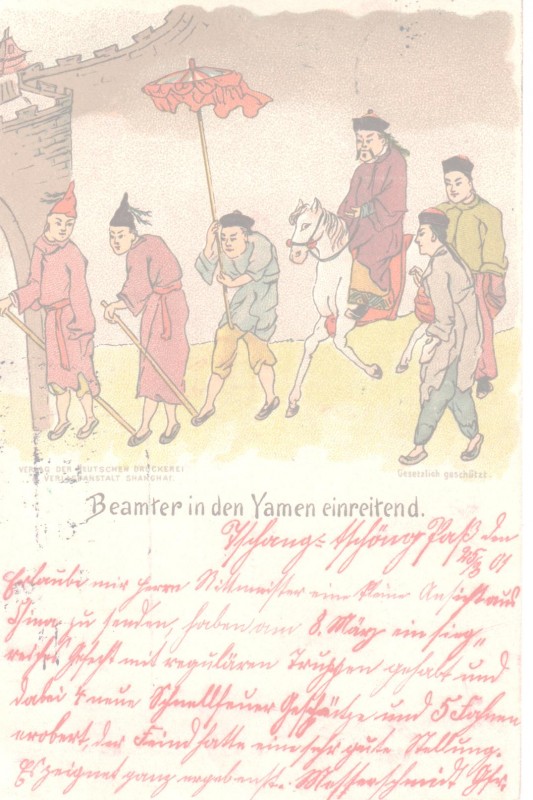 VERLAG DER DEUTSCHEN DRUCKEREI
VERLAGSANSTALT SHANGHAI.
Gesetzlich geschützt.
Beamter in den Yamen einreitend.
Tschang-tschöng Paß den
25/3 01
Erlaube mir Herrn Rittmeister eine kleine Ansicht aus
China zu senden, haben am 8. März ein sieg„
reiches Gefecht mit regulären Truppen gehabt und
dabei 4 neue Schnellfeuer Geschütze und 5 Fahnen
erobert, der Feind hatte eine sehr gute Stellung.
Es zeignet ganz ergebenst. Messerschmidt